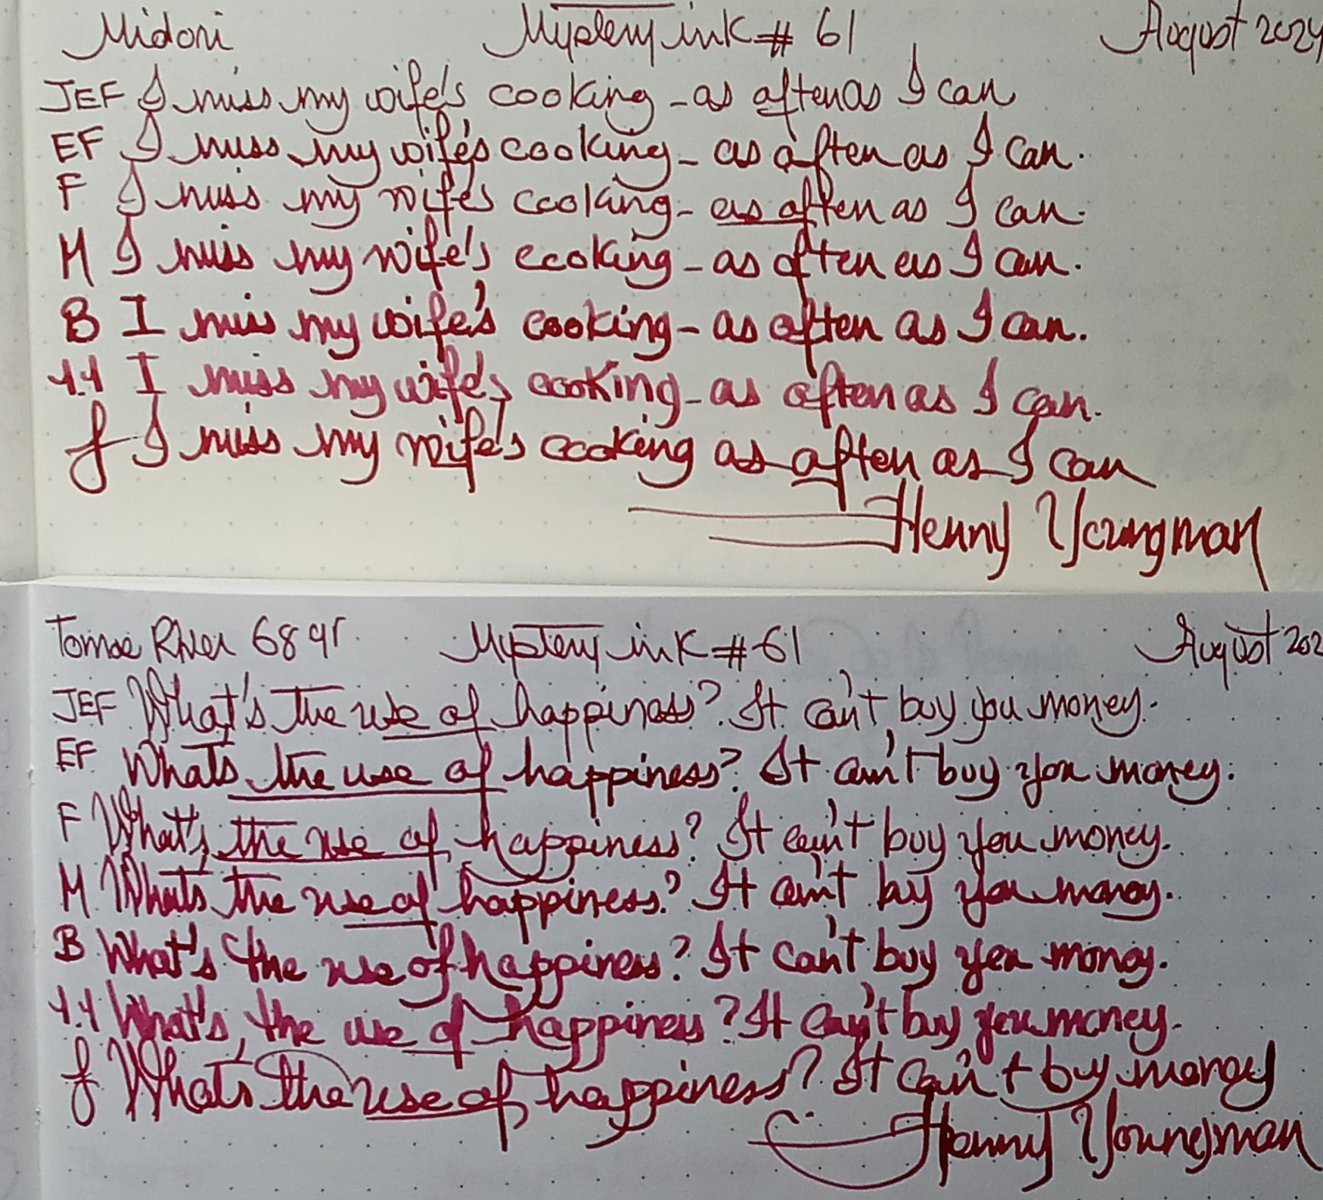 Midori Mystery ink # 61 August 2024
JEF I miss my wife's cooking - as often as I can
EF I miss my wife's cooking - as often as I can.
F I miss my wife's cooking - as often as I can.
M I miss my wife's cooking - as often as I can.
B I miss my wife's cooking - as often as I can.
1.1 I miss my wife's cooking - as often as I can.
f I miss my wife's cooking as often as I can
Henny Youngman
Tomoe River 68 gr. Mystery ink # 61 August 202
JEF What's the use of happiness? It can't buy you money.
EF What's the use of happiness? It can't buy you money.
F What's the use of happiness? It can't buy you money.
M What's the use of happiness? It can't buy you money.
B What's the use of happiness? It can't buy you money.
1.1 What's the use of happiness? It can't buy you money.
f What's the use of happiness? It can't buy money
Henny Youngman